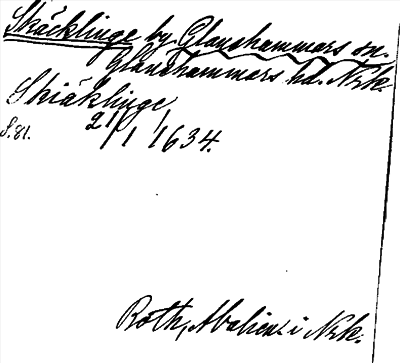 Skäcklinge by. Glanshammars sn.
Glanshammars hd. Nrk.
Skiäklinge
S. 81. 21/1 1634.
Roth, Abalien. i Nrk.